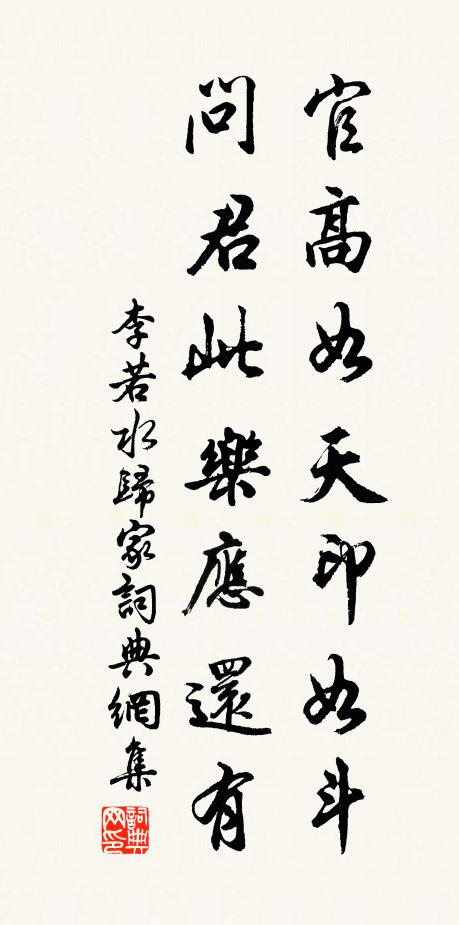 官高如天印如斗
問君此樂應還有
李若水歸家詞典網集
詞典网印